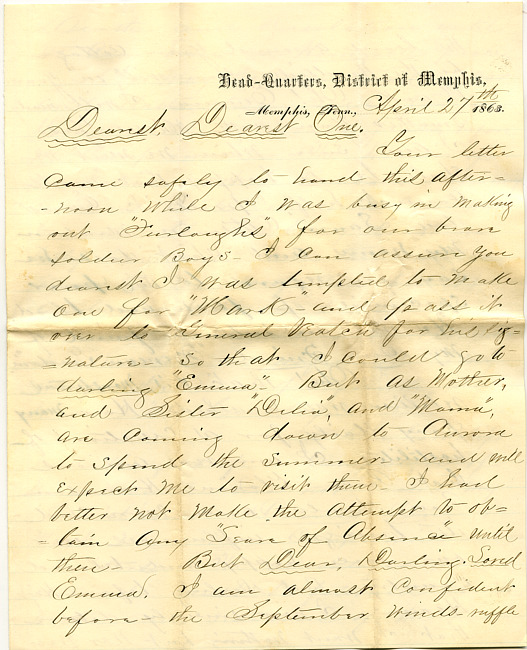 Head-Quarters, District of Memphis,
Memphis, Tenn., April 27th 1863.
Dearest, Dearest One.
Your letter
came safely to hand this after-
-noon while I was busy in making
out "Furloughs" for our brave
soldier Boys - I can assure you
dearest I was tempted to make
one for "Mark" - and pass it
over to General Veatch for his sig-
=nature - so that I could go to
darling "Emma". But as Mother,
and Sister "Delia", and "Mama",
are coming down to Aurora
to spend the summer - and will
expect me to visit them - I had
better not make the attempt to ob-
-tain any "Leave of Absence" until
then - But Dear, Darling, Loved
Emma. I am almost confident
before - the September winds - ruffle